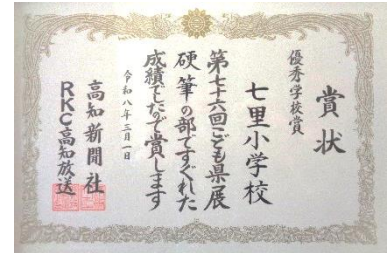 賞状
優秀学校賞
七里小学校
第七十六回こども県展
硬筆の部ですぐれた
成績でしたので賞します
令和八年三月一日
高知新聞社
RKC高知放送